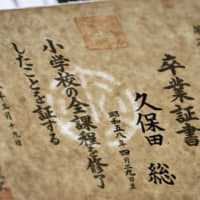 卒業証書
久保田 総
昭和五八年四月二九日生
小学校の全課程を修了
したことを証する
年三月十九日